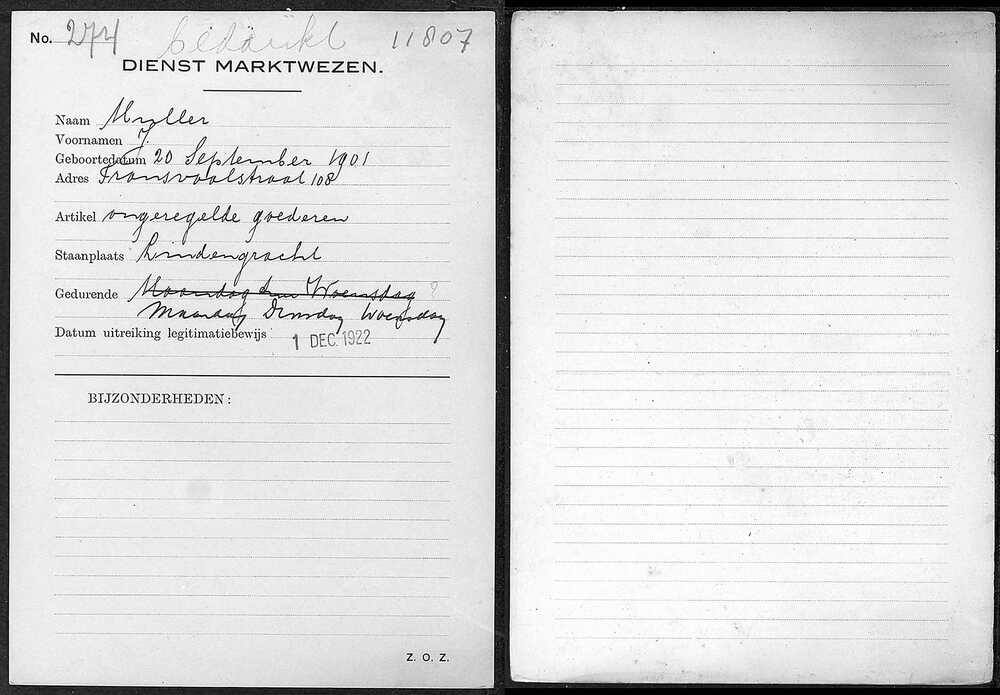 No. 274 bedankt 11807
DIENST MARKTWEZEN.
Naam Muller
Voornamen J.
Geboortedatum 20 September 1901
Adres Transvaalstraat 108
Artikel ongeregelde goederen
Staanplaats Lindengracht
Gedurende Maandag den Woensdag ?
Maandag Dinsdag Woensdag
Datum uitreiking legitimatiebewijs 1 DEC. 1922
BIJZONDERHEDEN:
Z. O. Z.